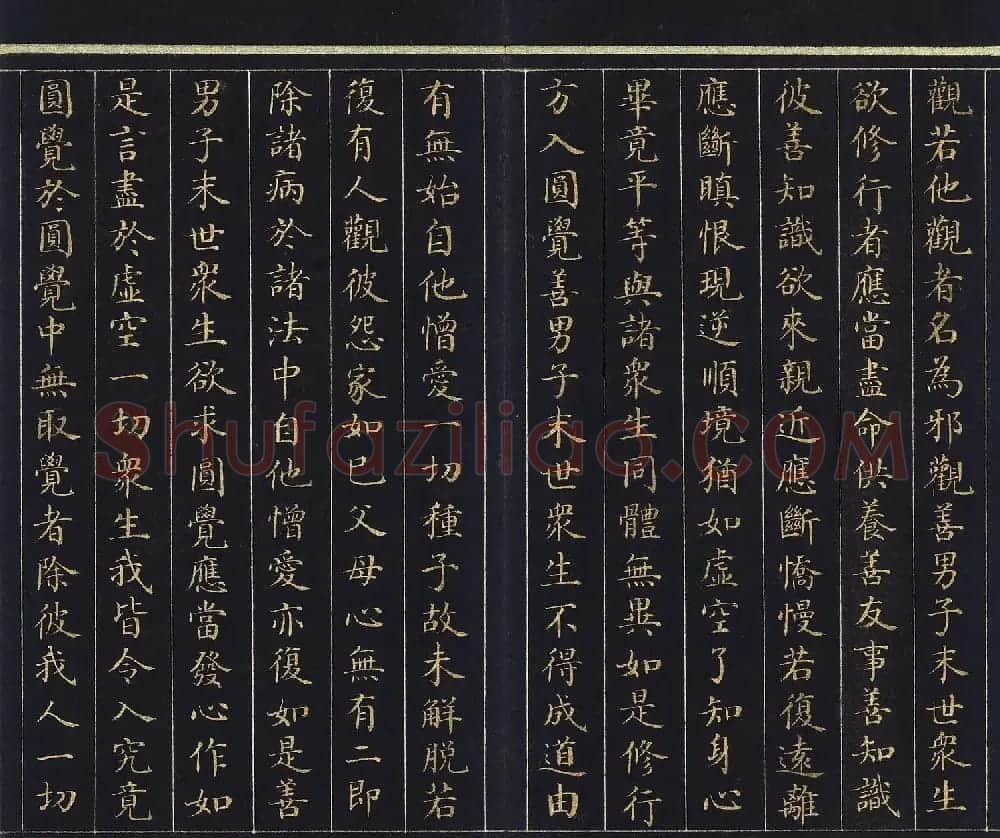 觀若他觀者名為邪觀善男子末世衆生
欲修行者應當盡命供養善友事善知識
彼善知識欲來親近應斷憍慢若復遠離
應斷瞋恨現逆順境猶如虛空了知身心
畢竟平等與諸衆生同體無異如是修行
方入圓覺善男子末世衆生不得成道由
有無始自他憎愛一切種子故未解脫若
復有人觀彼怨家如已父母心無有二即
除諸病於諸法中自他憎愛亦復如是善
男子末世衆生欲求圓覺應當發心作如
是言盡於虛空一切衆生我皆令入究竟
圓覺於圓覺中無取覺者除彼我人一切
Shufaziliao.COM